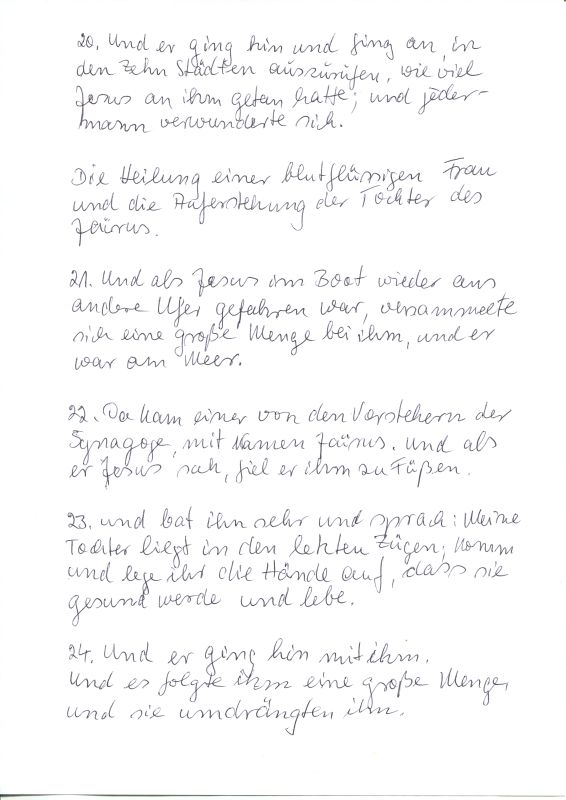 20. Und er ging hin und fing an, in
den Zehn Städten auszurufen, wie viel
Jesus an ihm getan hatte; und jeder-
mann verwunderte sich.
Die Heilung einer blutflüssigen Frau
und die Auferstehung der Tochter des
Jaïrus.
21. Und als Jesus im Boot wieder ans
andere Ufer gefahren war, versammelte
sich eine große Menge bei ihm, und er
war am Meer.
22. Da kam einer von den Vorstehern der
Synagoge, mit Namen Jaïrus. Und als
er Jesus sah, fiel er ihm zu Füßen.
23. und bat ihn sehr und sprach: Meine
Tochter liegt in den letzten Zügen; komm
und lege ihr die Hände auf, dass sie
gesund werde und lebe.
24. Und er ging hin mit ihm.
Und es folgte ihm eine große Menge,
und sie umdrängten ihn.